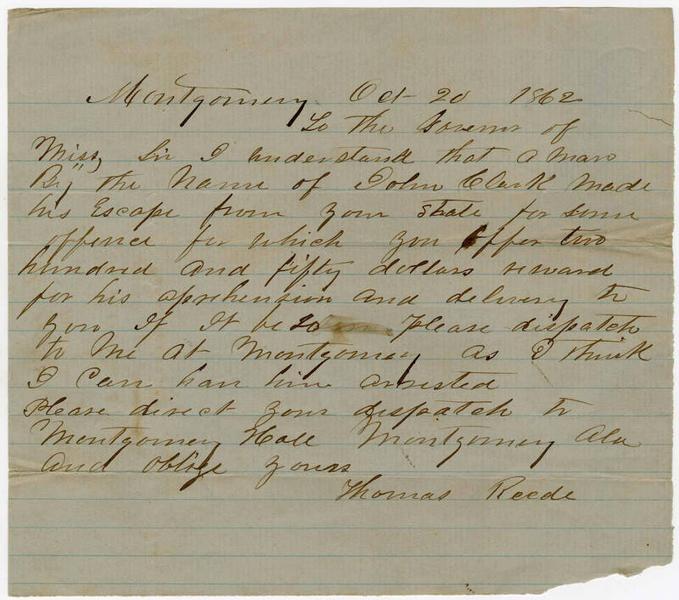 Montgomery Oct 20 1862
To the Govenor of
Miss, Sir I understand that a man
By the Name of John Clark made
his Escape from your State for some
offence for which you offer two
hundred and fifty dollars reward
for his aprehension and delivery to
you If It be so Please dispatch
to Me at Montgomery as I think
I Can han him arrested
Please direct your dispatch to
Montgomery Hall Montgomery Ala
and oblige yours
Thomas Reede